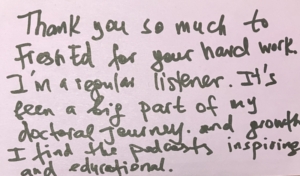 Thank you so much to
FreshEd for your hard work.
I'm a regular listener. It's
been a big part of my
doctoral journey. and growth
I find the podcasts inspiring
and educational.